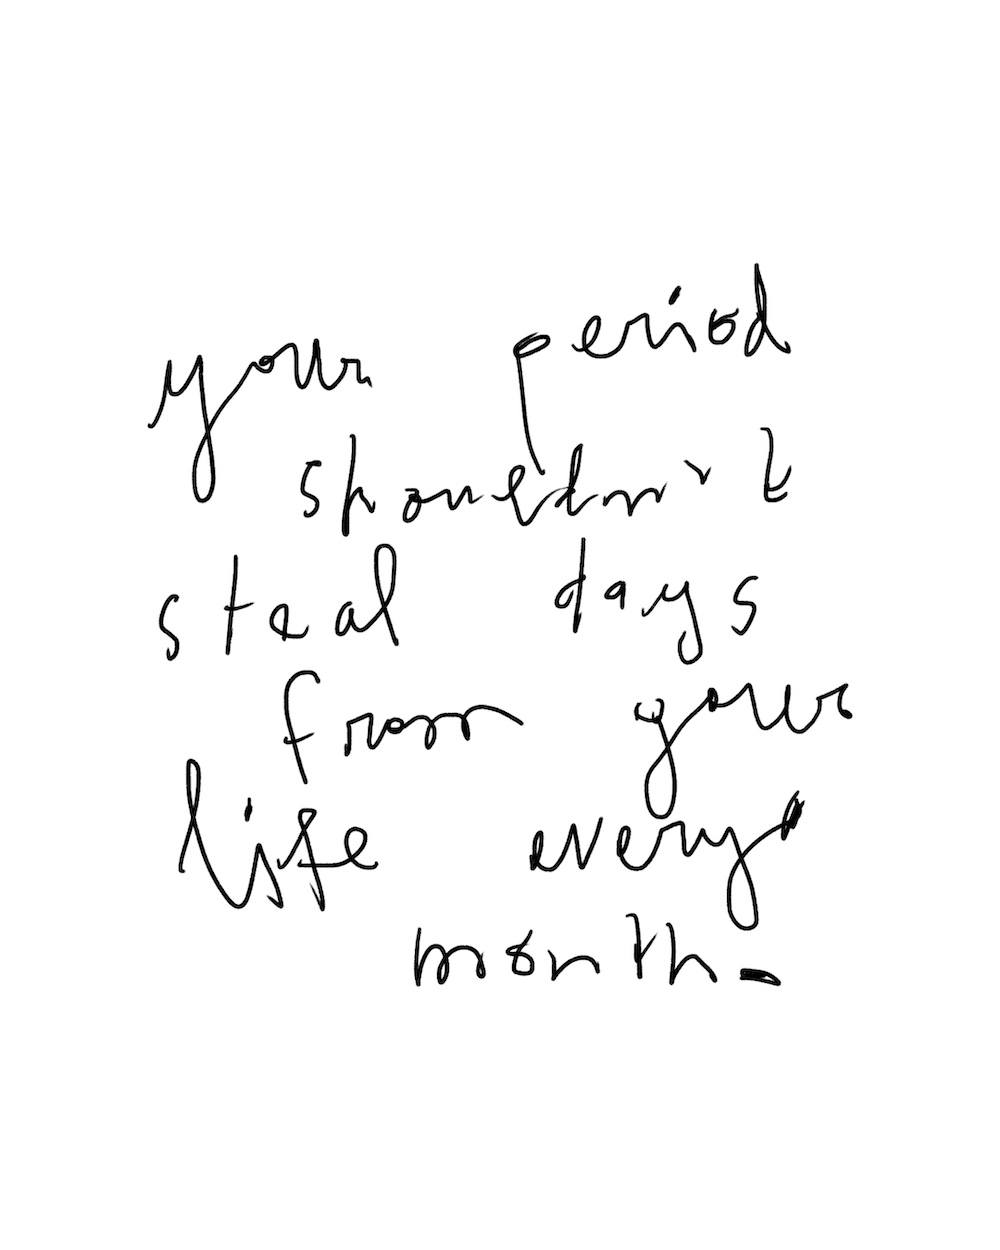 your period
shouldn't
steal days
from your
life every
month-